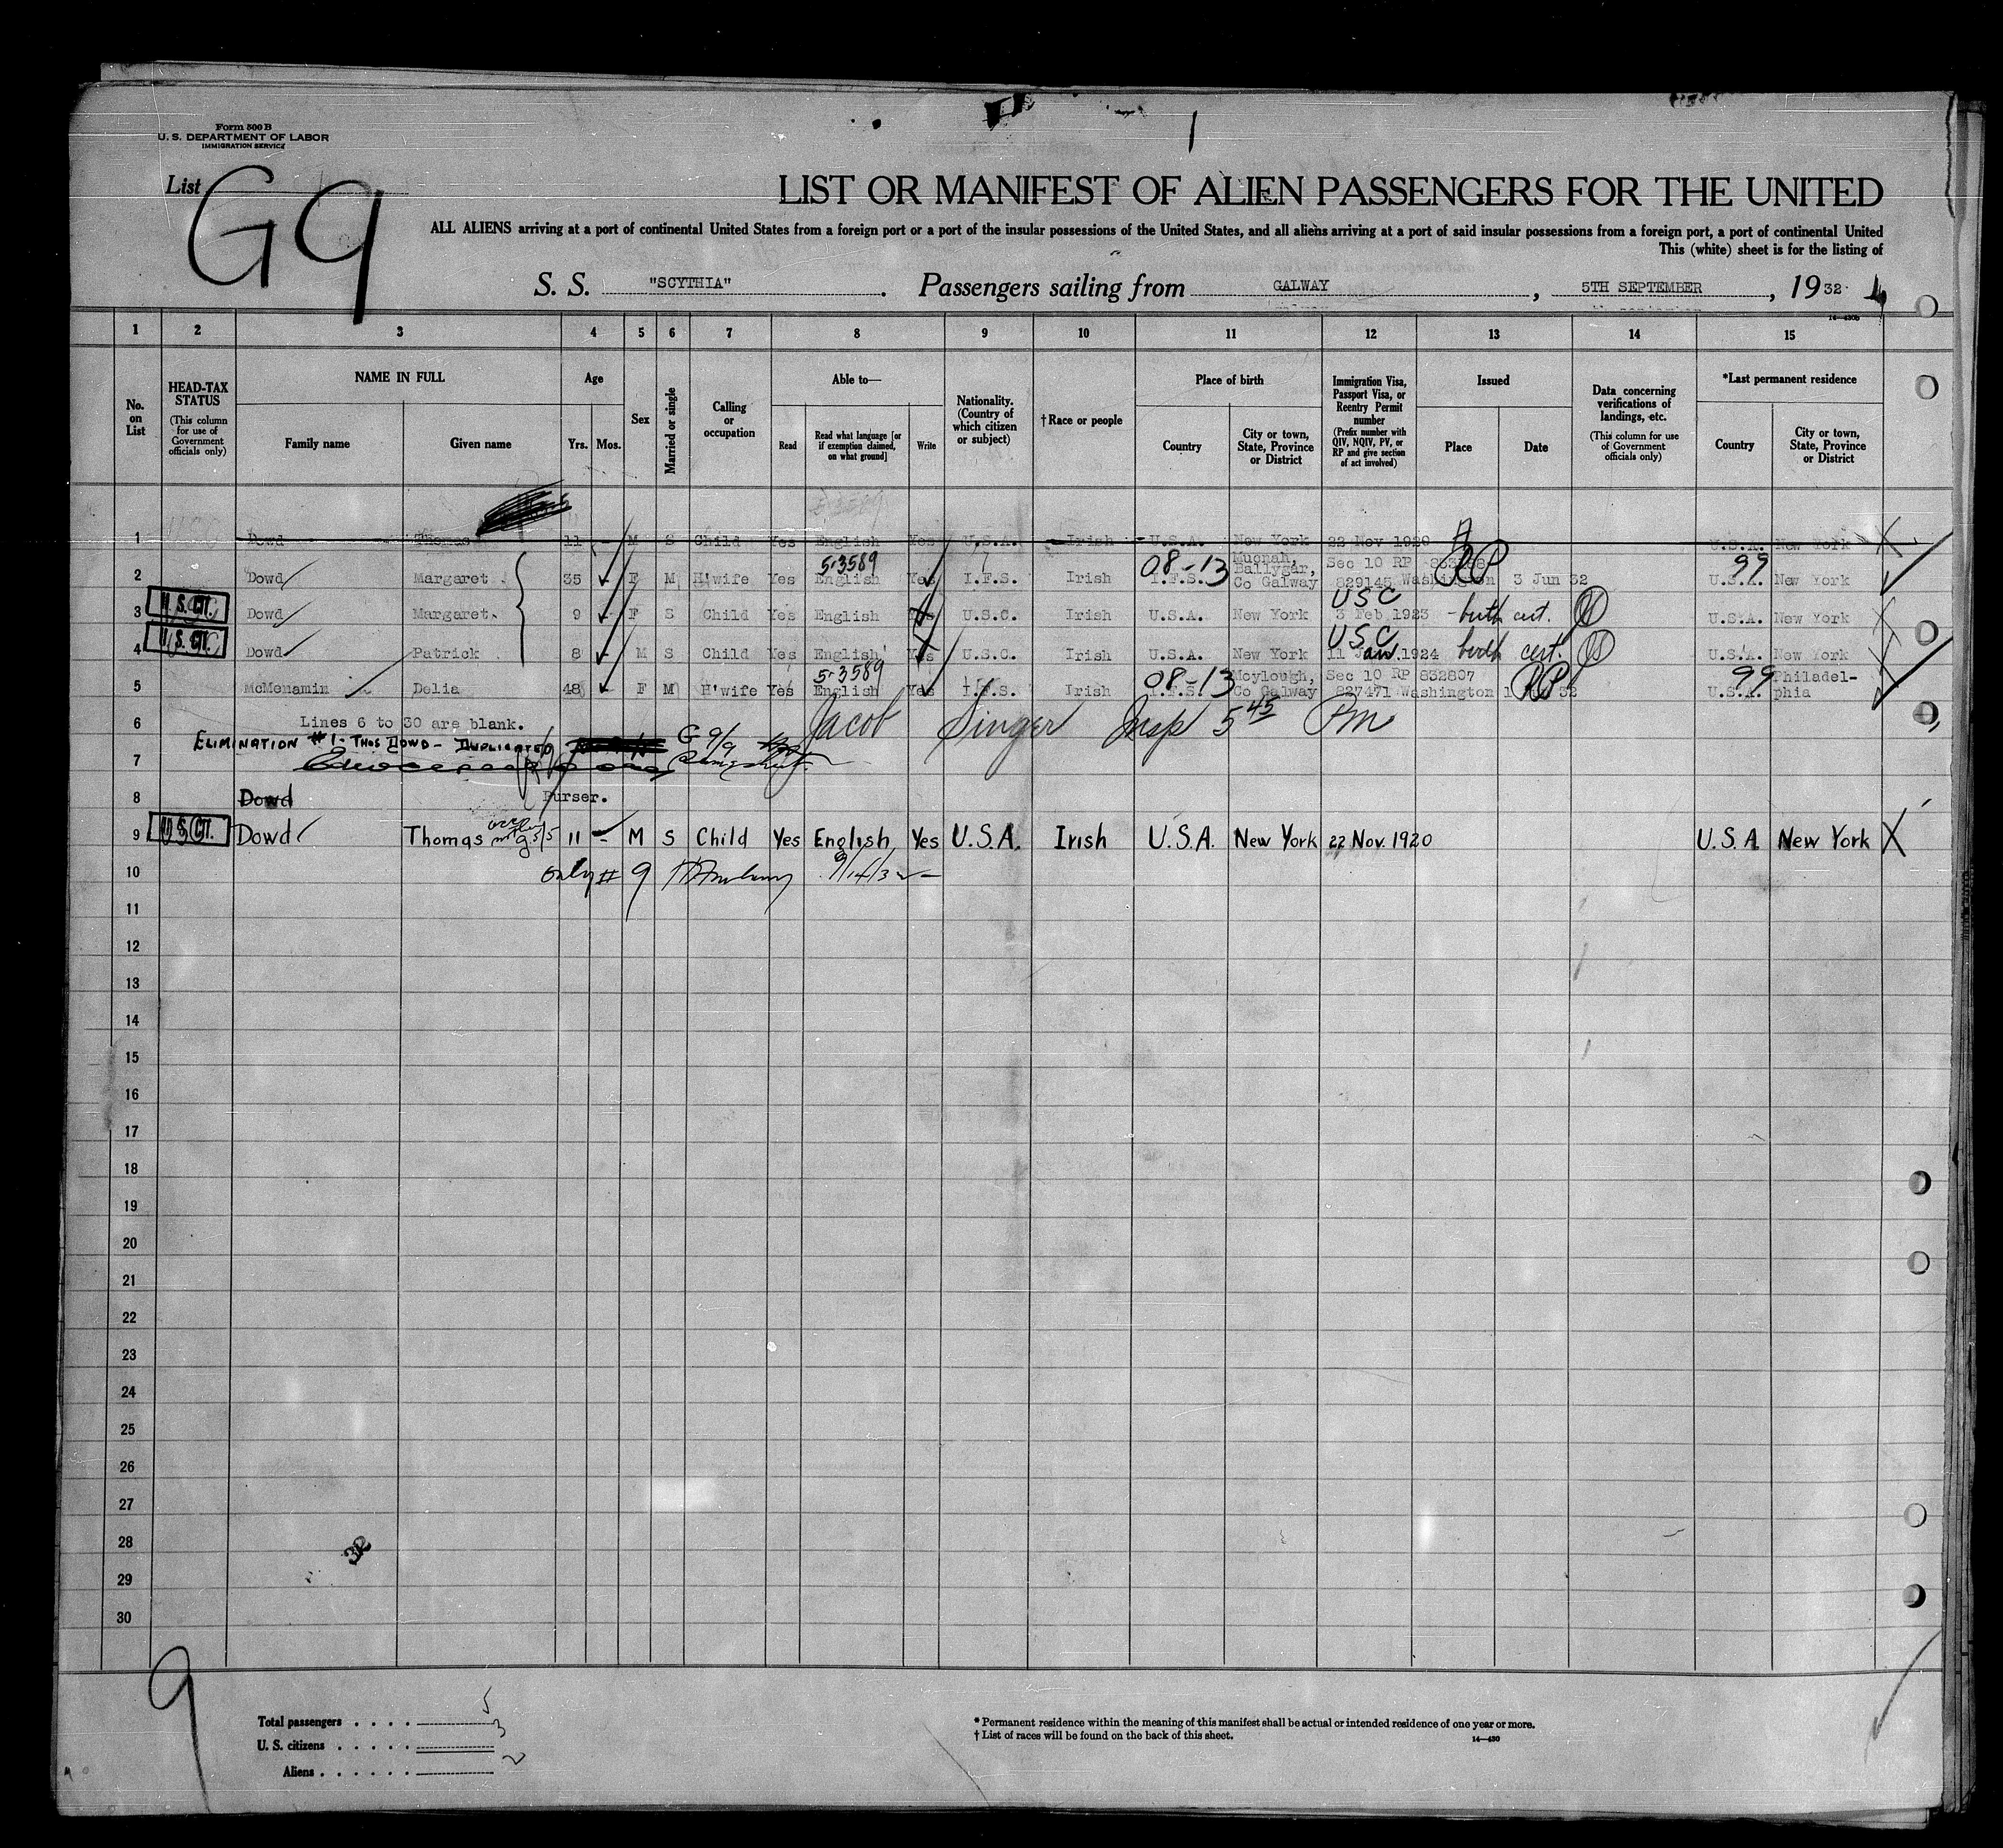 Form 500 B
U. S. DEPARTMENT OF LABOR
IMMIGRATION SERVICE
List
G9
LIST OR MANIFEST OF ALIEN PASSENGERS FOR THE UNITED
ALL ALIENS arriving at a port of continental United States from a foreign port or a port of the insular possessions of the United States, and all aliens arriving at a port of said insular possessions from a foreign port, a port of continental United
This (white) sheet is for the listing of
S. S. "SCYTHIA". Passengers sailing from GALWAY, 5TH SEPTEMBER, 1932
14—430b
1 2 3 4 5 6 7 8 9 10 11 12 13 14 15
No. on List
HEAD-TAX STATUS (This column for use of Government officials only)
NAME IN FULL
Family name Given name
Age
Yrs. Mos.
Sex
Married or single
Calling or occupation
Able to—
Read Read what language [or if exemption claimed, on what ground] Write
Nationality. (Country of which citizen or subject)
†Race or people
Place of birth
Country City or town, State, Province or District
Immigration Visa, Passport Visa, or Reentry Permit number (Prefix number with QIV, NQIV, PV, or RP and give section of act involved)
Issued
Place Date
Data concerning verifications of landings, etc. (This column for use of Government officials only)
*Last permanent residence
Country City or town, State, Province or District
1 Dowd Thomas 11 - M S Child Yes English Yes U.S.A. Irish U.S.A. New York 22 Nov 1920 U.S.A. New York
5-3589 08-13 RP 99
2 Dowd Margaret 35 F M H'wife Yes English Yes I.F.S. Irish I.F.S. Ballygar, Co Galway Sec 10 RP 829145 Washington 3 Jun 32 U.S.A. New York
U.S. CIT. USC
3 Dowd Margaret. 9 F S Child Yes English U.S.C. Irish U.S.A. New York 3 Feb 1923 - birth cert. U.S.A. New York
U.S. CIT. USC
4 Dowd Patrick 8 M S Child Yes English Yes U.S.C. Irish U.S.A. New York 11 Jan. 1924 birth cert. U.S.A. New York
5-3589 08-13 RP 99
5 McMenamin Delia 48 F M H'wife Yes English Yes I.F.S. Irish I.F.S. Moylough, Co Galway Sec 10 RP 832807 827471 Washington 32 U.S.A. Philadelphia
6 Lines 6 to 30 are blank. Jacob Singer Insp 5 45 PM
ELIMINATION #1 - THOS DOWD - DUPLICATED G 9/9
7
8 Dowd Purser.
9 U.S. CIT. Dowd Thomas 11 - M S Child Yes English Yes U.S.A. Irish U.S.A. New York 22 Nov. 1920 U.S.A New York X
10 only # 9 9/14/32
11
12
13
14
15
16
17
18
19
20
21
22
23
24
25
26
27
28
29
30
32
9
Total passengers . . . . 5
U. S. citizens . . . . . 3
Aliens . . . . . . 2
* Permanent residence within the meaning of this manifest shall be actual or intended residence of one year or more.
† List of races will be found on the back of this sheet.
14—430